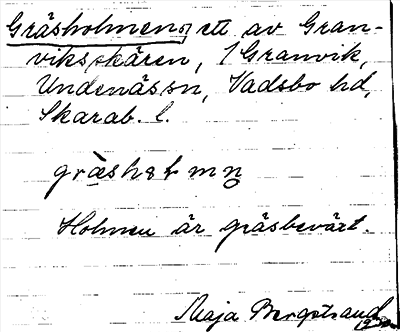 Gräsholmen, ett av Gran-
viksskären, 1 Granvik,
Undenässn, Vadsbo hd,
Skarab. l.
Holmen är gräsbevärt.
Maja Bergstrand